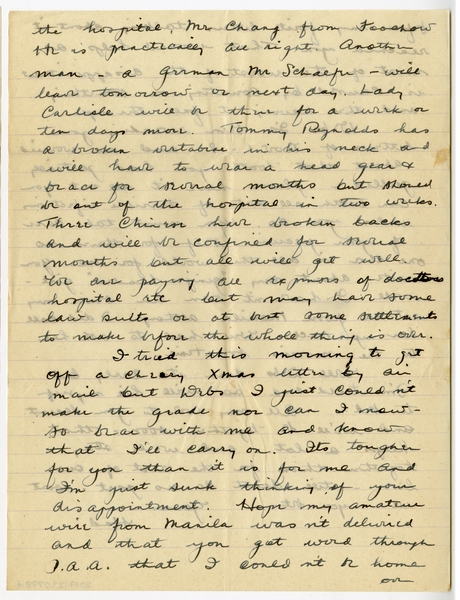 the hospital, Mr Chang from Foochow
He is practically all right. Another
man - a German Mr Schaefer - will
leave tomorrow or next day. Lady
Carlisle will be there for a week or
ten days more. Tommy Reynolds has
a broken vertabrae in his neck and
will have to wear a head gear &
brace for several months but should
be out of the hospital in two weeks.
Three Chinese have broken backs
and will be confined for several
months but all will get well.
We are paying all expenses of doctors
hospital etc but may have some
law suits or at best some settlements
to make before the whole thing is over.
I tried this morning to get
off a cheery Xmas letter by air
mail but Debs I just couldn't
make the grade nor can I now -
So bear with me and know
that I'll carry on. Its tougher
for you than it is for me and
I'm just sunk thinking of your
disappointment. Hope my amateur
wire from Manila wasn't delivered
and that you got word through
P.A.A. that I couldn't be home
over